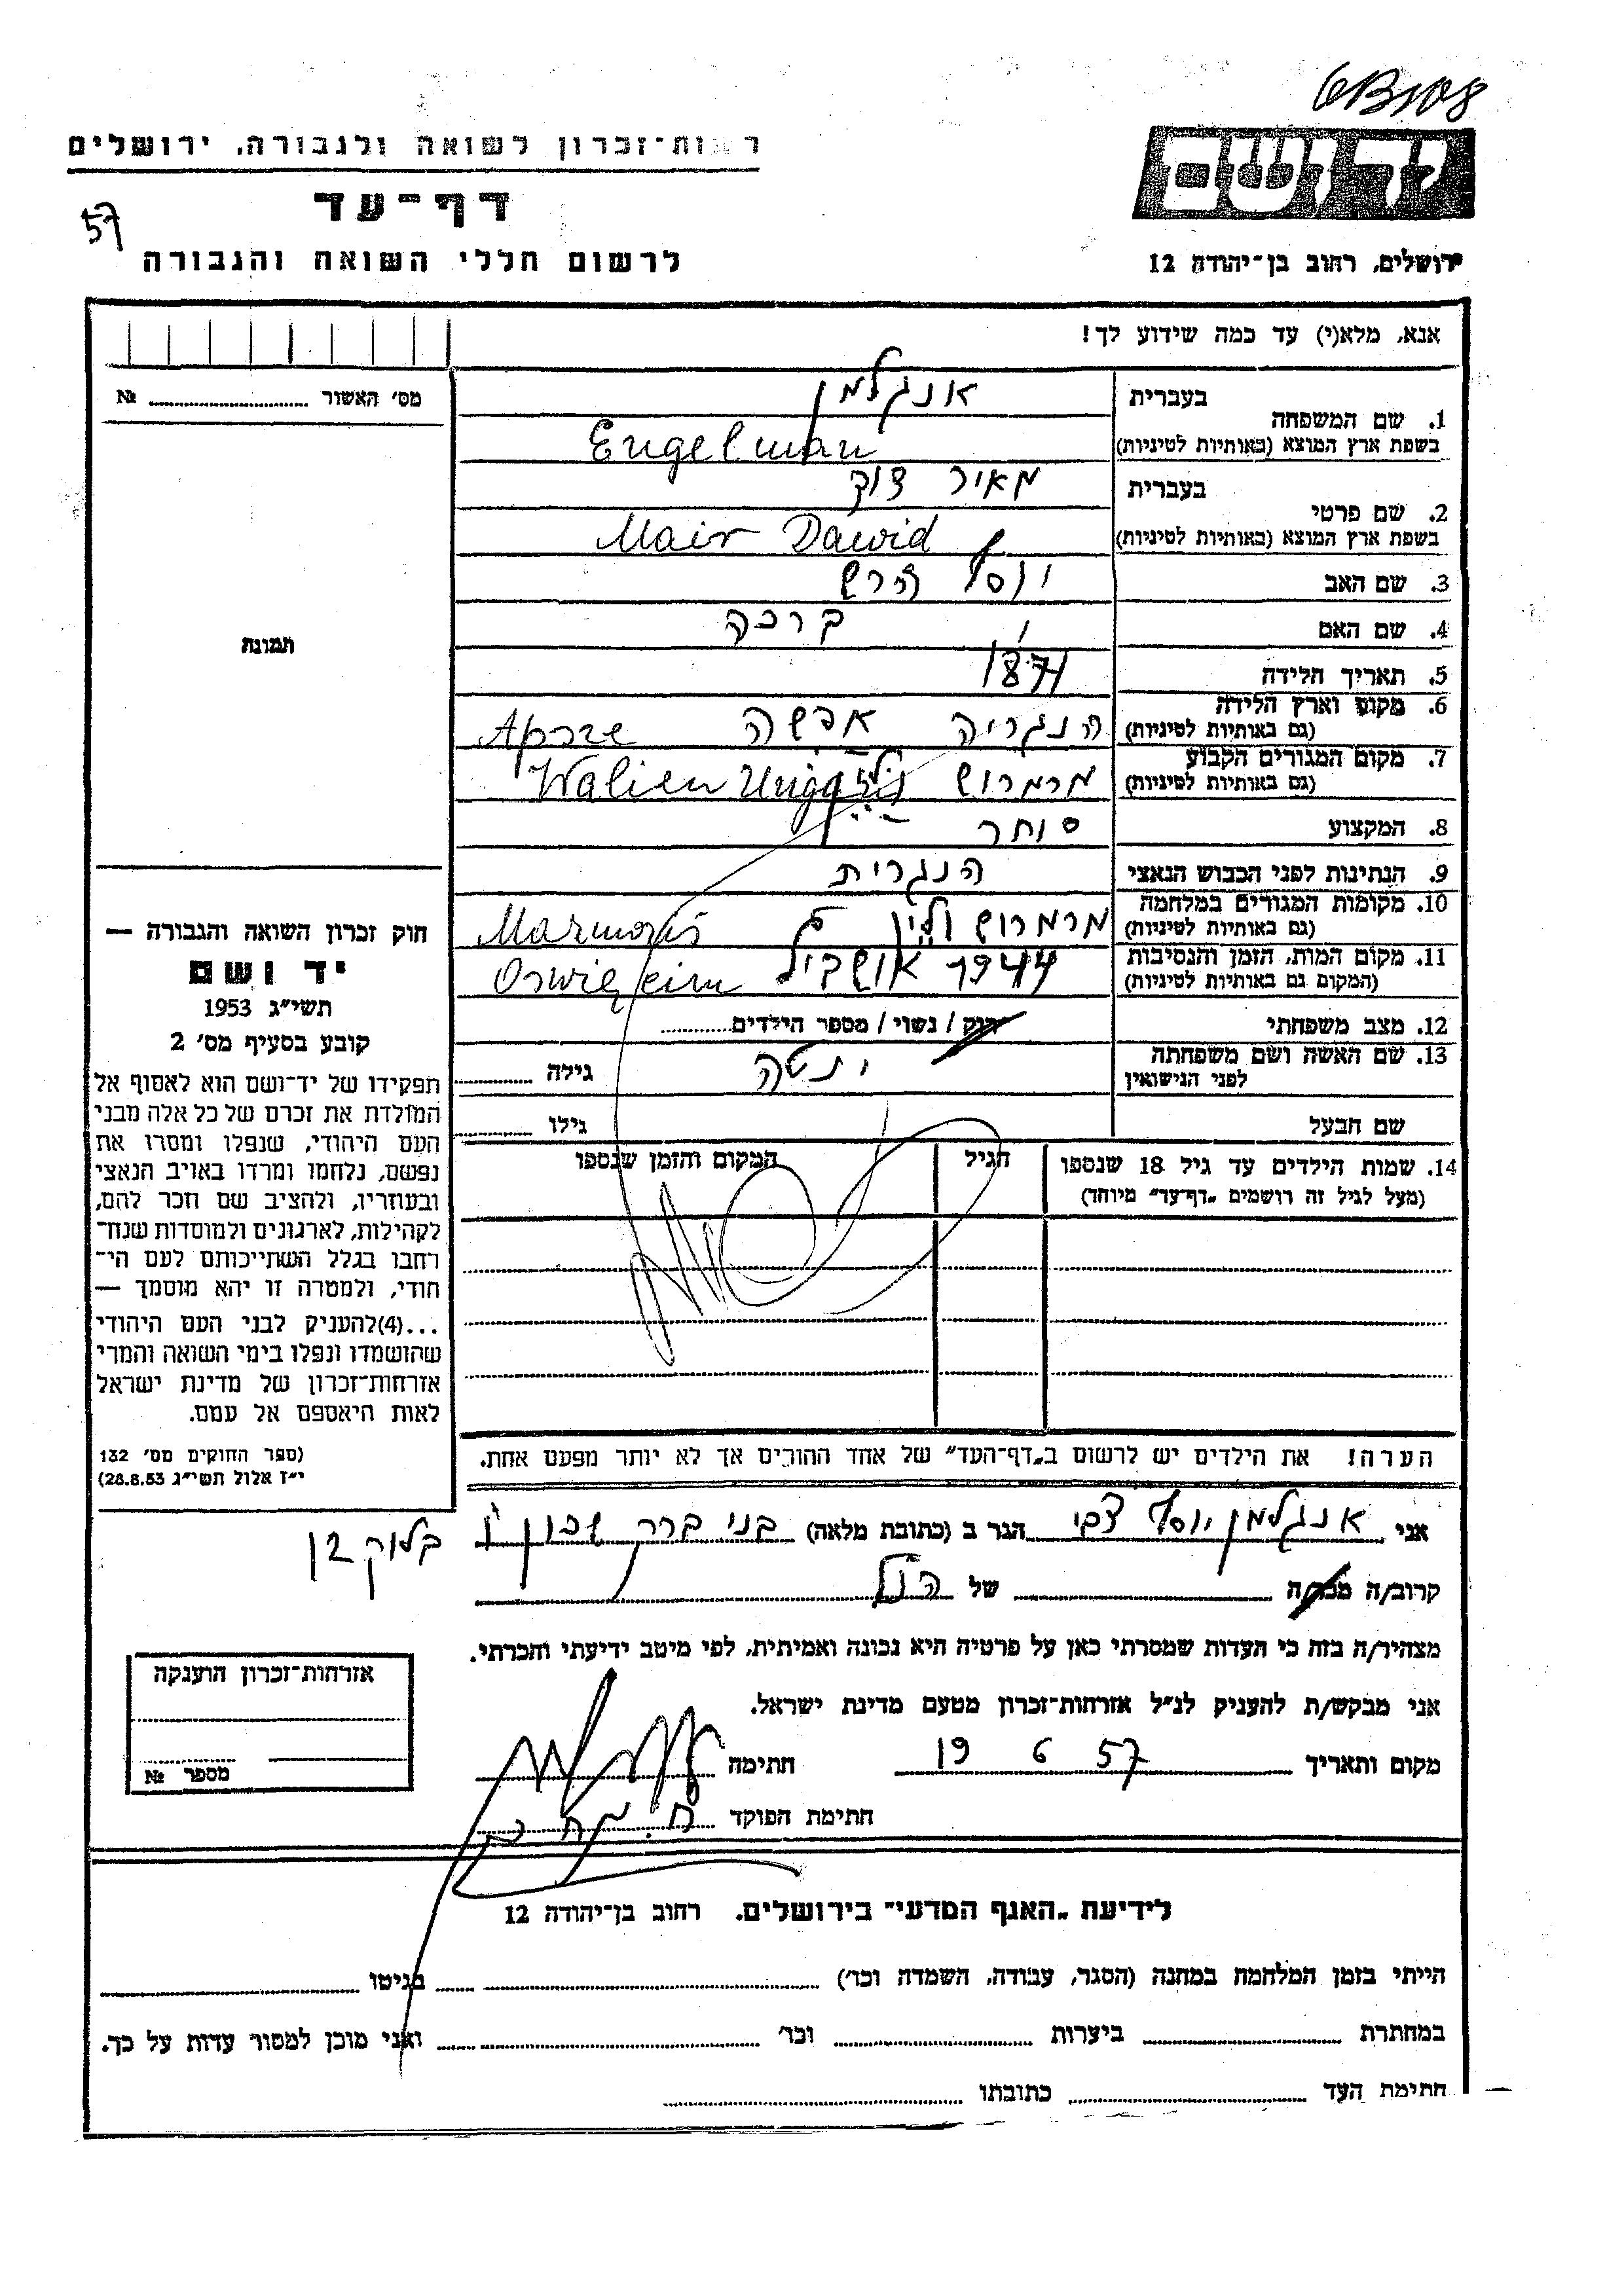 6B108
רשות-זכרון לשואה ולגבורה, ירושלים
דף-עד
57
לרשום חללי השואה והגבורה
יד ושם
ירושלים, רחוב בן-יהודה 12
אנא, מלא(י) עד כמה שידוע לך!
מס' האשור № ........
תמונה
1. שם המשפחה בעברית אנגלמן
בשפת ארץ המוצא (באותיות לטיניות) Engelman
2. שם פרטי בעברית מאיר דוד
בשפת ארץ המוצא (באותיות לטיניות) Mair Dawid
3. שם האב יוסף הרש
4. שם האם ברכה
5. תאריך הלידה 1871
6. מקום וארץ הלידה (גם באותיות לטיניות) הנגריה אפשה Apsze
7. מקום המגורים הקבוע (גם באותיות לטיניות) מרמרוש Walien
8. המקצוע סוחר
9. הנתינות לפני הכבוש הנאצי הנגרית
10. מקומות המגורים במלחמה (גם באותיות לטיניות) מרמרוש
11. מקום המות, הזמן והנסיבות (המקום גם באותיות לטיניות) 1944
12. מצב משפחתי רווק / נשוי / מספר הילדים ........
13. שם האשה ושם משפחתה לפני הנישואין יטה גילה ........
שם הבעל גילו ........
14. שמות הילדים עד גיל 18 שנספו (מעל לגיל זה רושמים „דף-עד" מיוחד) הגיל המקום והזמן שנספו
חוק זכרון השואה והגבורה —
יד ושם
תשי״ג 1953
קובע בסעיף מס' 2
תפקידו של יד-ושם הוא לאסוף אל
המולדת את זכרם של כל אלה מבני
העם היהודי, שנפלו ומסרו את
נפשם, נלחמו ומרדו באויב הנאצי
ובעוזריו, ולהציב שם וזכר להם,
לקהילות, לארגונים ולמוסדות שנח-
רבו בגלל השתייכותם לעם הי-
הודי, ולמטרה זו יהא מוסמך —
...(4)להעניק לבני העם היהודי
שהושמדו ונפלו בימי השואה והמרי
אזרחות-זכרון של מדינת ישראל
לאות היאספם אל עמם.
(ספר החוקים מס' 132
י״ז אלול תשי״ג 28.8.53)
הערה! את הילדים יש לרשום ב„דף-העד" של אחד ההורים אך לא יותר מפעם אחת.
אני אנגלמן יוסף צבי הגר ב (כתובת מלאה) בני ברק שכון ו
בלוק 12
קרוב/ה מכר/ה ........ של הנ״ל
מצהיר/ה בזה כי העדות שמסרתי כאן על פרטיה היא נכונה ואמיתית, לפי מיטב ידיעתי והכרתי.
אני מבקש/ת להעניק לנ״ל אזרחות-זכרון מטעם מדינת ישראל.
מקום ותאריך 19 6 57 חתימה
חתימת הפוקד
אזרחות-זכרון הוענקה
מספר №
לידיעת „האגף המדעי" בירושלים. רחוב בן-יהודה 12
הייתי בזמן המלחמה במחנה (הסגר, עבודה, השמדה וכו') ........ בגיטו ........
במחתרת ........ ביערות ........ וכו' ........ ואני מוכן למסור עדות על כך.
חתימת העד ........ כתובתו ........